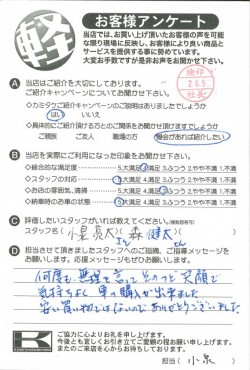 軽
お客様アンケート
当店では、お買い上げ頂いたお客様の声を可能
な限り現場に反映し、お客様により良い商品と
サービスを提供する事に努めています。
大変お手数ですが是非お声をお聞かせ下さい。
A 当店はご紹介を大切にしております。
ご紹介キャンペーンについてお聞かせください
検印
26.5
社長
◇カミタケご紹介キャンペーンのご説明はありましたでしょうか
はい いいえ
◇具体的にご紹介頂ける方とのご関係をお聞かせ頂けますでしょうか
ご親族 ご友人 職場の方 機会があれば紹介したい
B 当店を実際にご利用になった印象をお聞かせ下さい。
◇総合的な満足度 5大満足 4.満足 3.ふつう 2.やや不満 1.不満
◇スタッフの対応 5大満足 4.満足 3.ふつう 2.やや不満 1.不満
◇お店の雰囲気、清掃 5大満足 4.満足 3.ふつう 2.やや不満 1.不満
◇納車時のお車の状態 5大満足 4.満足 3.ふつう 2.やや不満 1.不満
C 評価したいスタッフがいれば教えてください。(複数回答可)
スタッフ名( 小泉 亮太 森 健太 )
D 担当させて頂きましたスタッフへのご指摘、ご指導メッセージを
お願いします。応援メッセージもぜひお願いします。
何度も無理を言って そのつど笑顔で
気持ちよく 車の購入が出来ました
安い買い物ではないので ありがとうございました
K
ご協力に心よりお礼を申し上げます。
今後とも宜しくお引き立てご愛顧の程お願い申し上げます。
またのご来店を心からお待ちしております。
担当( 小泉 )